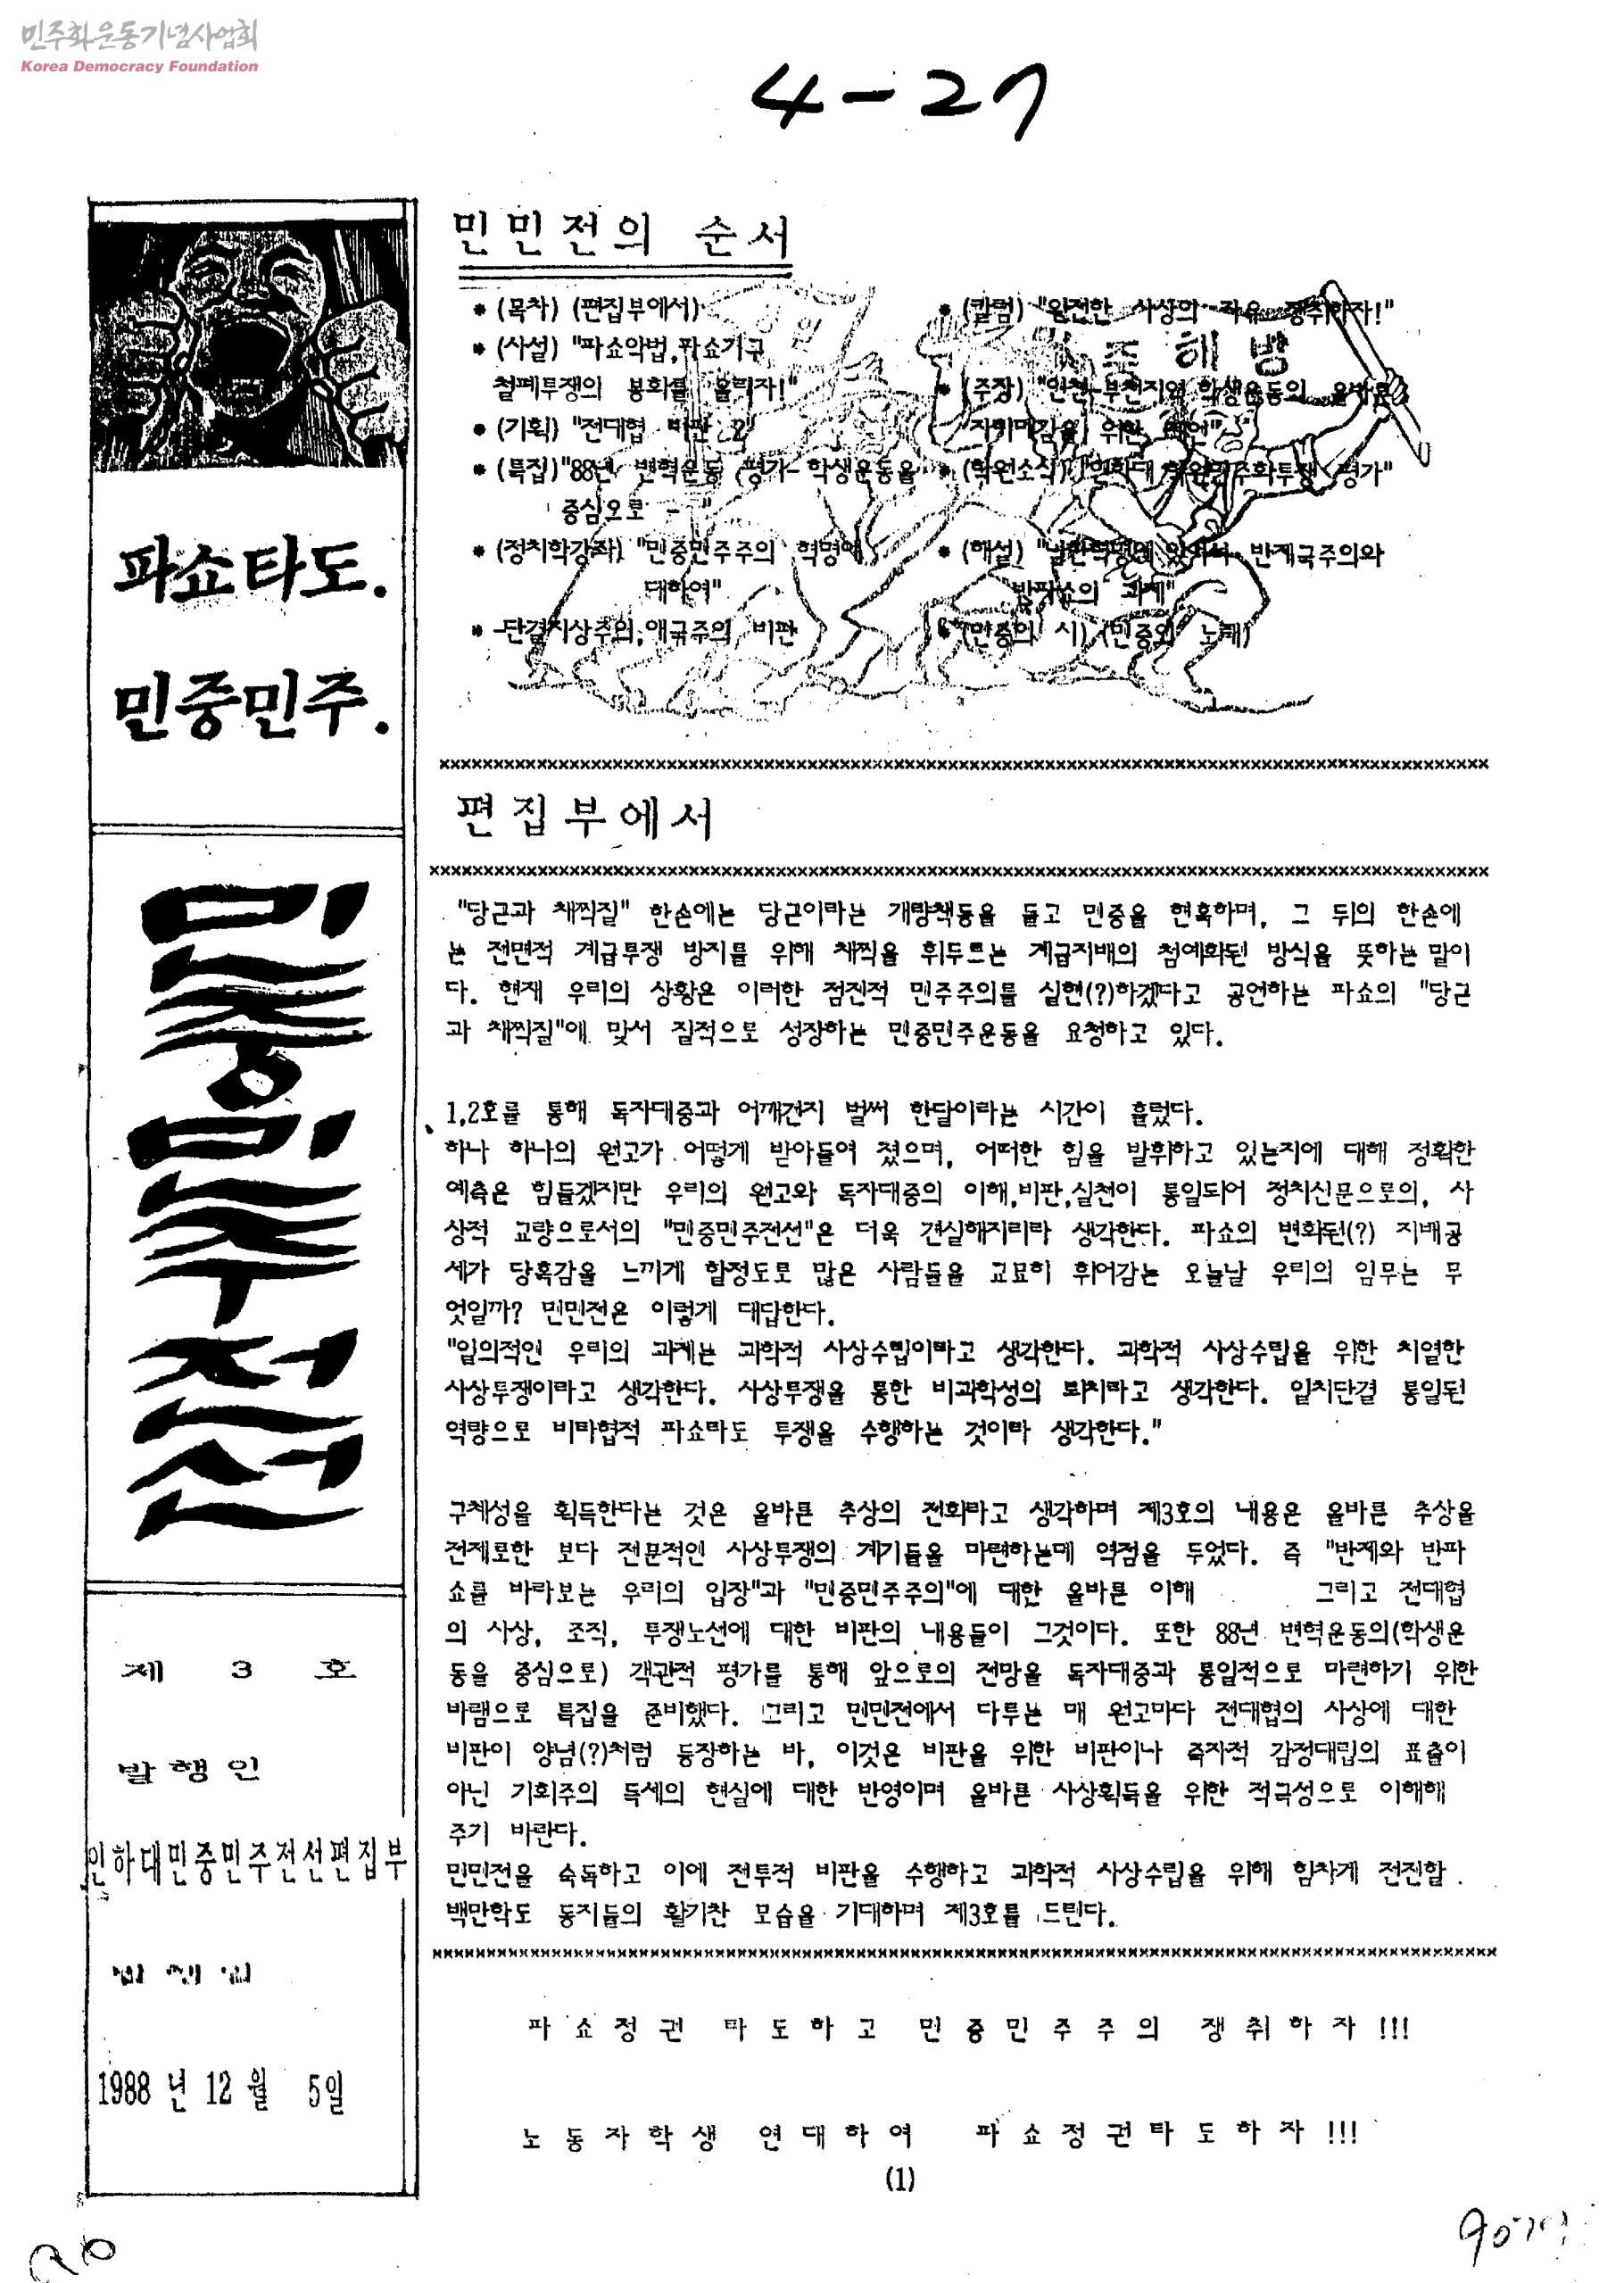 민주화운동기념사업회
Korea Democracy Foundation
4-27
파쇼타도.
민중민주.
민중민주전선
제 3 호
발행인
인하대민중민주전선편집부
1988 년 12 월 5일
민민전의 순서
* (목차) (편집부에서)
* (사설) "파쇼악법,파쇼기구
철폐투쟁의 봉화를 올리자!"
* (기획) "전대협 비판 2"
* (특집)"88년 변혁운동 평가- 학생운동을
중심으로 - "
* (정치학강좌) "민중민주주의 혁명에
대하여"
* -단결지상주의,애국주의 비판
* (칼럼) "완전한 사상의 자유 쟁취하자!"
해방
* (주장) "인천-부천지역 학생운동의 올바른
자리매김을 위한 제언"
* (학원소식) "인하대 학원민주화투쟁 평가"
* (해설) "남한혁명에 있어서 반제국주의와
반파쇼의 과제"
* (민중의 시) (민중의 노래)
편집부에서
"당근과 채찍질" 한손에는 당근이라는 개량책동을 들고 민중을 현혹하며, 그 뒤의 한손에
는 전면적 계급투쟁 방지를 위해 채찍을 휘두르는 계급지배의 첨예화된 방식을 뜻하는 말이
다. 현재 우리의 상황은 이러한 점진적 민주주의를 실현(?)하겠다고 공언하는 파쇼의 "당근
과 채찍질"에 맞서 질적으로 성장하는 민중민주운동을 요청하고 있다.
1,2호를 통해 독자대중과 어깨건지 벌써 한달이라는 시간이 흘렀다.
하나 하나의 원고가 어떻게 받아들여 졌으며, 어떠한 힘을 발휘하고 있는지에 대해 정확한
예측은 힘들겠지만 우리의 원고와 독자대중의 이해,비판,실천이 통일되어 정치신문으로의, 사
상적 교량으로서의 "민중민주전선"은 더욱 견실해지리라 생각한다. 파쇼의 변화된(?) 지배공
세가 당혹감을 느끼게 할정도로 많은 사람들을 교묘히 휘어감는 오늘날 우리의 임무는 무
엇일까? 민민전은 이렇게 대답한다.
"일의적인 우리의 과제는 과학적 사상수립이라고 생각한다. 과학적 사상수립을 위한 치열한
사상투쟁이라고 생각한다. 사상투쟁을 통한 비과학성의 퇴치라고 생각한다. 일치단결 통일된
역량으로 비타협적 파쇼타도 투쟁을 수행하는 것이라 생각한다."
구체성을 획득한다는 것은 올바른 추상의 전화라고 생각하며 제3호의 내용은 올바른 추상을
전제로한 보다 전문적인 사상투쟁의 계기들을 마련하는데 역점을 두었다. 즉 "반제와 반파
쇼를 바라보는 우리의 입장"과 "민중민주주의"에 대한 올바른 이해 그리고 전대협
의 사상, 조직, 투쟁노선에 대한 비판의 내용들이 그것이다. 또한 88년 변혁운동의(학생운
동을 중심으로) 객관적 평가를 통해 앞으로의 전망을 독자대중과 통일적으로 마련하기 위한
바램으로 특집을 준비했다. 그리고 민민전에서 다루는 매 원고마다 전대협의 사상에 대한
비판이 양념(?)처럼 등장하는 바, 이것은 비판을 위한 비판이나 즉자적 감정대립의 표출이
아닌 기회주의 득세의 현실에 대한 반영이며 올바른 사상획득을 위한 적극성으로 이해해
주기 바란다.
민민전을 숙독하고 이에 전투적 비판을 수행하고 과학적 사상수립을 위해 힘차게 전진할
백만학도 동지들의 활기찬 모습을 기대하며 제3호를 드린다.
파쇼정권 타도하고 민중민주주의 쟁취하자!!!
노동자학생 연대하여 파쇼정권타도하자!!!
(1)